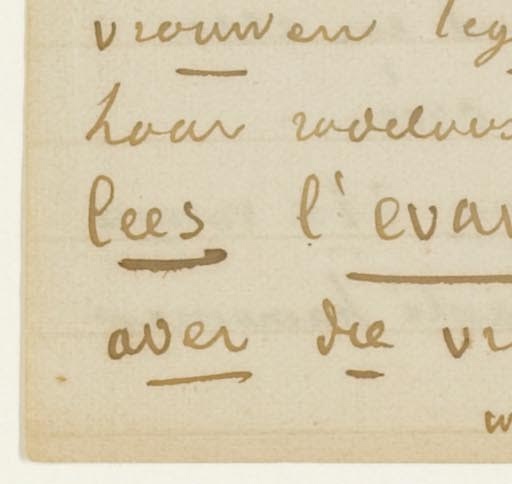 vrouwen teg
haar radeloos
lees l'evan
over die vr
w